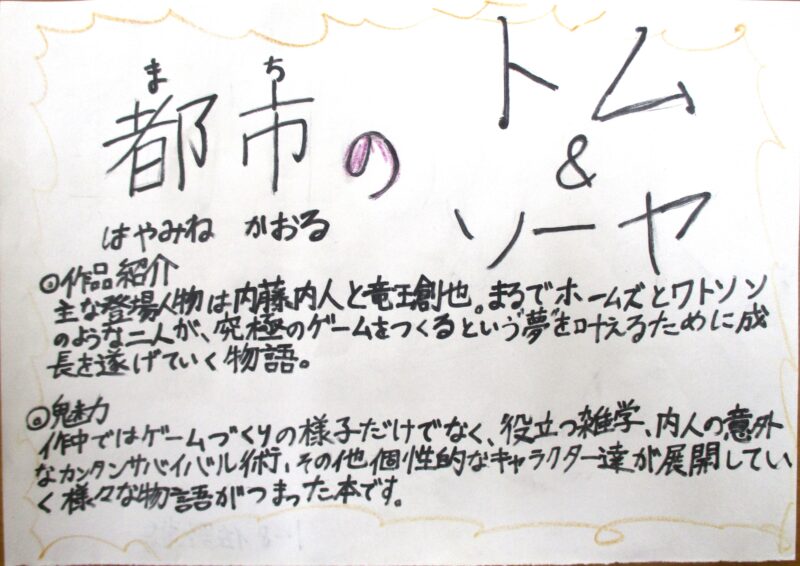 まち
都市のトム&ソーヤ
はやみね かおる
◎作品紹介
主な登場人物は内藤内人と竜王創也。まるでホームズとワトソン
のような二人が、究極のゲームをつくるという夢を叶えるために成
長を遂げていく物語。
◎魅力
作中ではゲームづくりの様子だけでなく、役立つ雑学、内人の意外
なカンタンサバイバル術、その他個性的なキャラクター達が展開してい
く様々な物語がつまった本です。